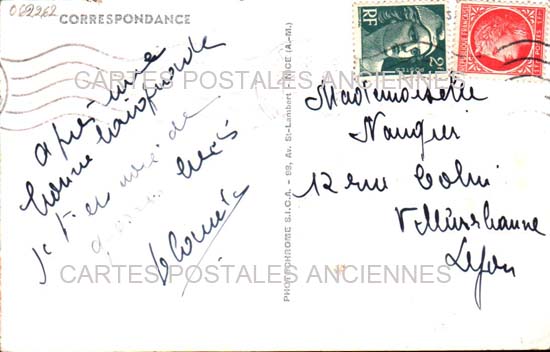 062262
CORRESPONDANCE
après une
bonne baignade
je t'envoie de
gros
PHOTOCHROME S.I.C.A. - 99, Av. St-Lambert - NICE (A.-M.)
RF
2
POSTES
Mademoiselle
12 rue Colin
Villeurbanne
Lyon
CARTES POSTALES ANCIENNES
CARTES POSTALES ANCIENNES